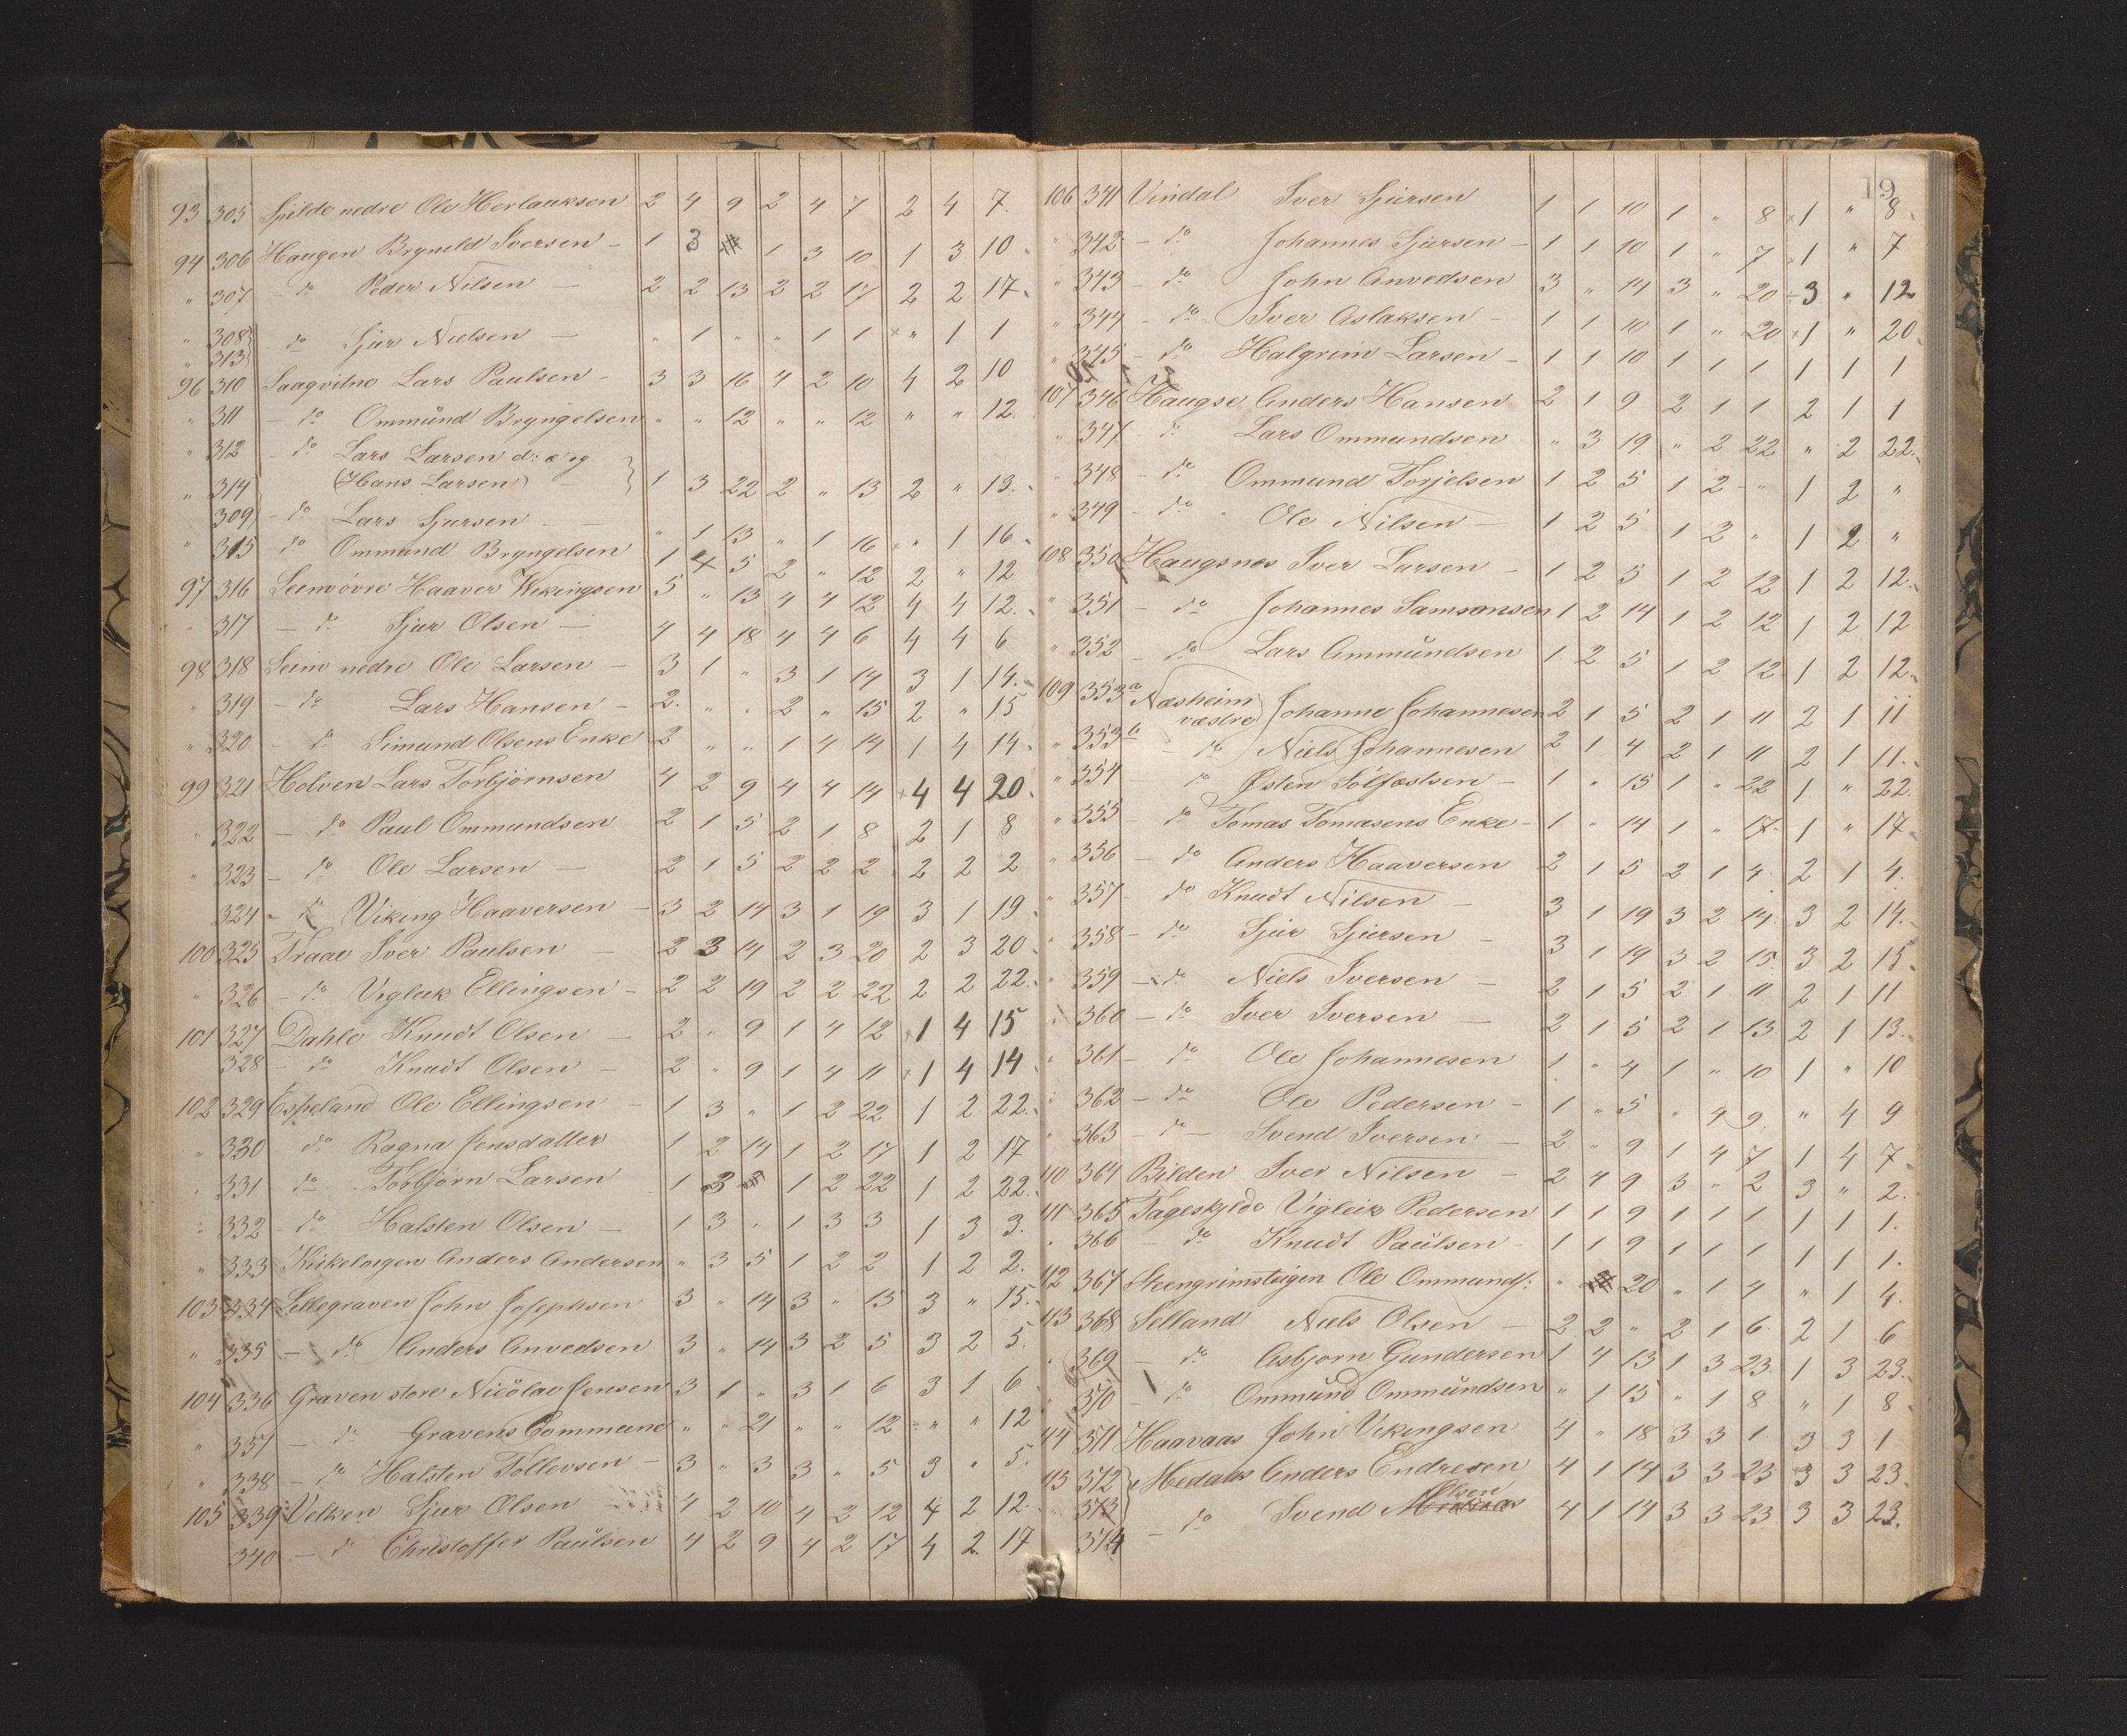 93 305 Spilde nedre Ole Herlauksen 2 4 9 2 4 7 2 4 7.
94 306 Haugen Bryneld Iversen - 1 3 1 3 10 1 3 10
" 307 - do Peder Nilsen - 2 2 13 2 2 17 2 2 17.
" 308 - do Sjur Nielsen - " 1 " " 1 1 " 1 1
" 313
96 310 Saaqvitne Lars Paulsen - 3 3 16 4 2 10 4 2 10
" 311 - do Ommund Bryngelsen " " 12 " " 12 " " 12.
" 312 - do Lars Larsen d: æ og
" 314 (Hans Larsen) - 1 3 22 2 " 13 2 " 13.
309 - do Lars Sjursen - " 1 13 " 1 16 " 1 16
" 315 - do Ommund Bryngelsen 1 4 5 2 " 12 2 " 12
97 316 Seim övre Haaver Wikingsen 5 " 13 4 4 12 4 4 12.
" 317 - do Sjur Olsen - 4 4 18 4 4 6 4 4 6
98 318 Seim nedre Ole Larsen - 3 1 " 3 1 14 3 1 14.
" 319 - do Lars Hansen - 2 " " 2 " 15 2 " 15
" 320 - do Simund Olsens Enke 2 " " 1 4 14 1 4 14
99 321 Holven Lars Torbjörnsen 4 2 9 4 4 14 4 4 20
" 322 - do Paul Ommundsen 2 1 5 2 1 8 2 1 8
" 323 - do Ole Larsen - 2 1 5 2 2 2 2 2 2
324 - do Viking Haaversen - 3 2 14 3 1 19 3 1 19
100 325 Traae Iver Paulsen - 2 3 14 2 3 20 2 3 20
" 326 - do Vigleik Ellingsen - 2 2 19 2 2 22 2 2 22
101 327 Dahle Knudt Olsen - 2 " 9 1 4 12 1 4 15
328 - do Knudt Olsen - 2 " 9 1 4 11 1 4 14
102 329 Espeland Ole Ellingsen - 1 3 " 1 2 22 1 2 22
" 330 do Ragna Jensdatter 1 2 14 1 2 17 1 2 17
" 331 - do Torbjörn Larsen 1 3 1 2 22 1 2 22
" 332 - do Halsten Olsen - 1 3 " 1 3 3 1 3 3.
" 333 Anders Andersen " 3 5 1 2 2 1 2 2.
103 334 Lillegraven John Josephsen 3 " 14 3 " 15 3 " 15.
" 335 - do Anders Anvedsen 3 " 14 3 2 5 3 2 5.
104 336 Graven store Nicolau Jensen 3 1 " 3 1 6 3 1 6
" 337 - do Gravens Commune " " 21 " " 12 " " 12
" 338 - do Halsten Tollevsen - 3 " 3 3 " 5 3 " 5.
105 339 Velken Sjur Olsen 4 2 10 4 2 12 4 2 12
340 - do Christoffer Paulsen 4 2 9 4 2 17 4 2 17
19
106 341 Vindal Iver Sjursen 1 1 10 1 " 8 1 " 8
" 342 - do Johannes Sjursen - 1 1 10 1 " 7 1 " 7
" 343 - do John Anvedsen 3 " 14 3 " 20 3 " 12
" 344 - do Iver Aslaksen - 1 1 10 1 " 20 1 " 20
" 345 - do Halgrim Larsen - 1 1 10 1 1 1 1 1 1
107 346 Haugse Anders Hansen 2 1 9 2 1 1 2 1 1
" 347 do Lars Ommundsen " 3 19 " 2 22 " 2 22.
" 348 - do Ommund Torjelsen 1 2 5 1 2 " 1 2 "
" 349 - do Ole Nilsen - 1 2 5 1 2 " 1 2 "
108 350 Haugsnes Iver Larsen - 1 2 5 1 2 12 1 2 12.
" 351 - do Johannes Samsonsen 1 2 14 1 2 12 1 2 12
" 352 - do Lars Ammundsen 1 2 5 1 2 12 1 2 12.
109 353a Næsheim væstre Johanne Johannesen 2 1 5 2 1 11 2 1 11
" 353b - do Niels Johannesen 2 1 4 2 1 11 2 1 11.
" 354 do Østen Solfæstsen - 1 " 15 1 " 22 1 " 22.
" 355 - do Tomas Tomasens Enke - 1 " 14 1 " 17 1 " 17
" 356 - do Anders Haaversen 2 1 5 2 1 4 2 1 4.
" 357 - do Knudt Nilsen - 3 1 19 3 2 14 3 2 14.
" 358 - do Sjur Sjursen - 3 1 19 3 2 15 3 2 15.
" 359 - do Niels Iversen - 2 1 5 2 1 11 2 1 11
" 360 - do Iver Iversen - 2 1 5 2 1 13 2 1 13.
" 361 - do Ole Johannesen 1 " 4 1 " 10 1 " 10
" 362 - do Ole Pedersen - 1 " 5 " 4 9 " 4 9
" 363 - do - Svend Iversen - 2 " 9 1 4 7 1 4 7
110 364 Bilden Iver Nilsen - 2 4 9 3 " 2 3 " 2.
111 365 Fageskylde Vigleik Pedersen 1 1 9 1 1 1 1 1 1.
" 366 - do Knudt Paulsen - 1 1 9 1 1 1 1 1 1.
112 367 Steengrimsteigen Ole Ommunds: " 20 " 1 4 " 1 4.
113 368 Selland Niels Olsen - 2 2 " 2 1 6 2 1 6
" 369 - do Asbjorn Gundersen 1 4 13 1 3 23 1 3 23.
" 370 - do Ommund Ommundsen " 1 15 " 1 8 " 1 8
114 371 Haavaas John Vikingsen 4 " 18 3 3 1 3 3 1
115 372 Medaas Anders Endresen 4 1 14 3 3 23 3 3 23.
" 373 - do Svend Medaas Olsen 4 1 14 3 3 23 3 3 23.
374